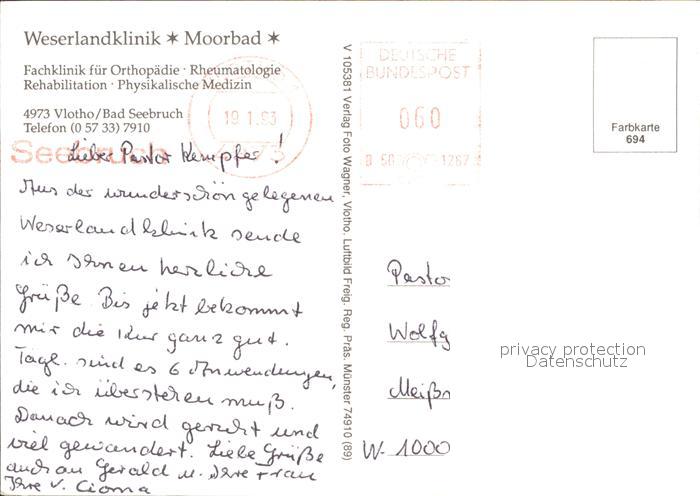 Weserlandklinik ✶ Moorbad ✶
Fachklinik für Orthopädie · Rheumatologie
Rehabilitation · Physikalische Medizin
4973 Vlotho/Bad Seebruch
Telefon (0 57 33) 7910
19.1.93
Seebruch
4973
DEUTSCHE
BUNDESPOST
060
1267
Farbkarte
694
V 105381 Verlag Foto Wagner, Vlotho. Luftbild Freig. Reg. Präs. Münster 74910 (89)
Lieber Pastor Kempfer!
Aus der wunderschön gelegenen
Weserlandklinik sende
ich Ihnen herzliche
Grüße. Bis jetzt bekommt
mir die Kur ganz gut.
Tägl. sind es 6 Anwendungen,
die ich überstehen muß.
Danach wird geruht und
viel gewandert. Liebe Grüße
auch an Gerald u. Ihre Frau
Ihre v. Cioma
Pastor
Wolfg
Meißn
W-1000
privacy protection
Datenschutz